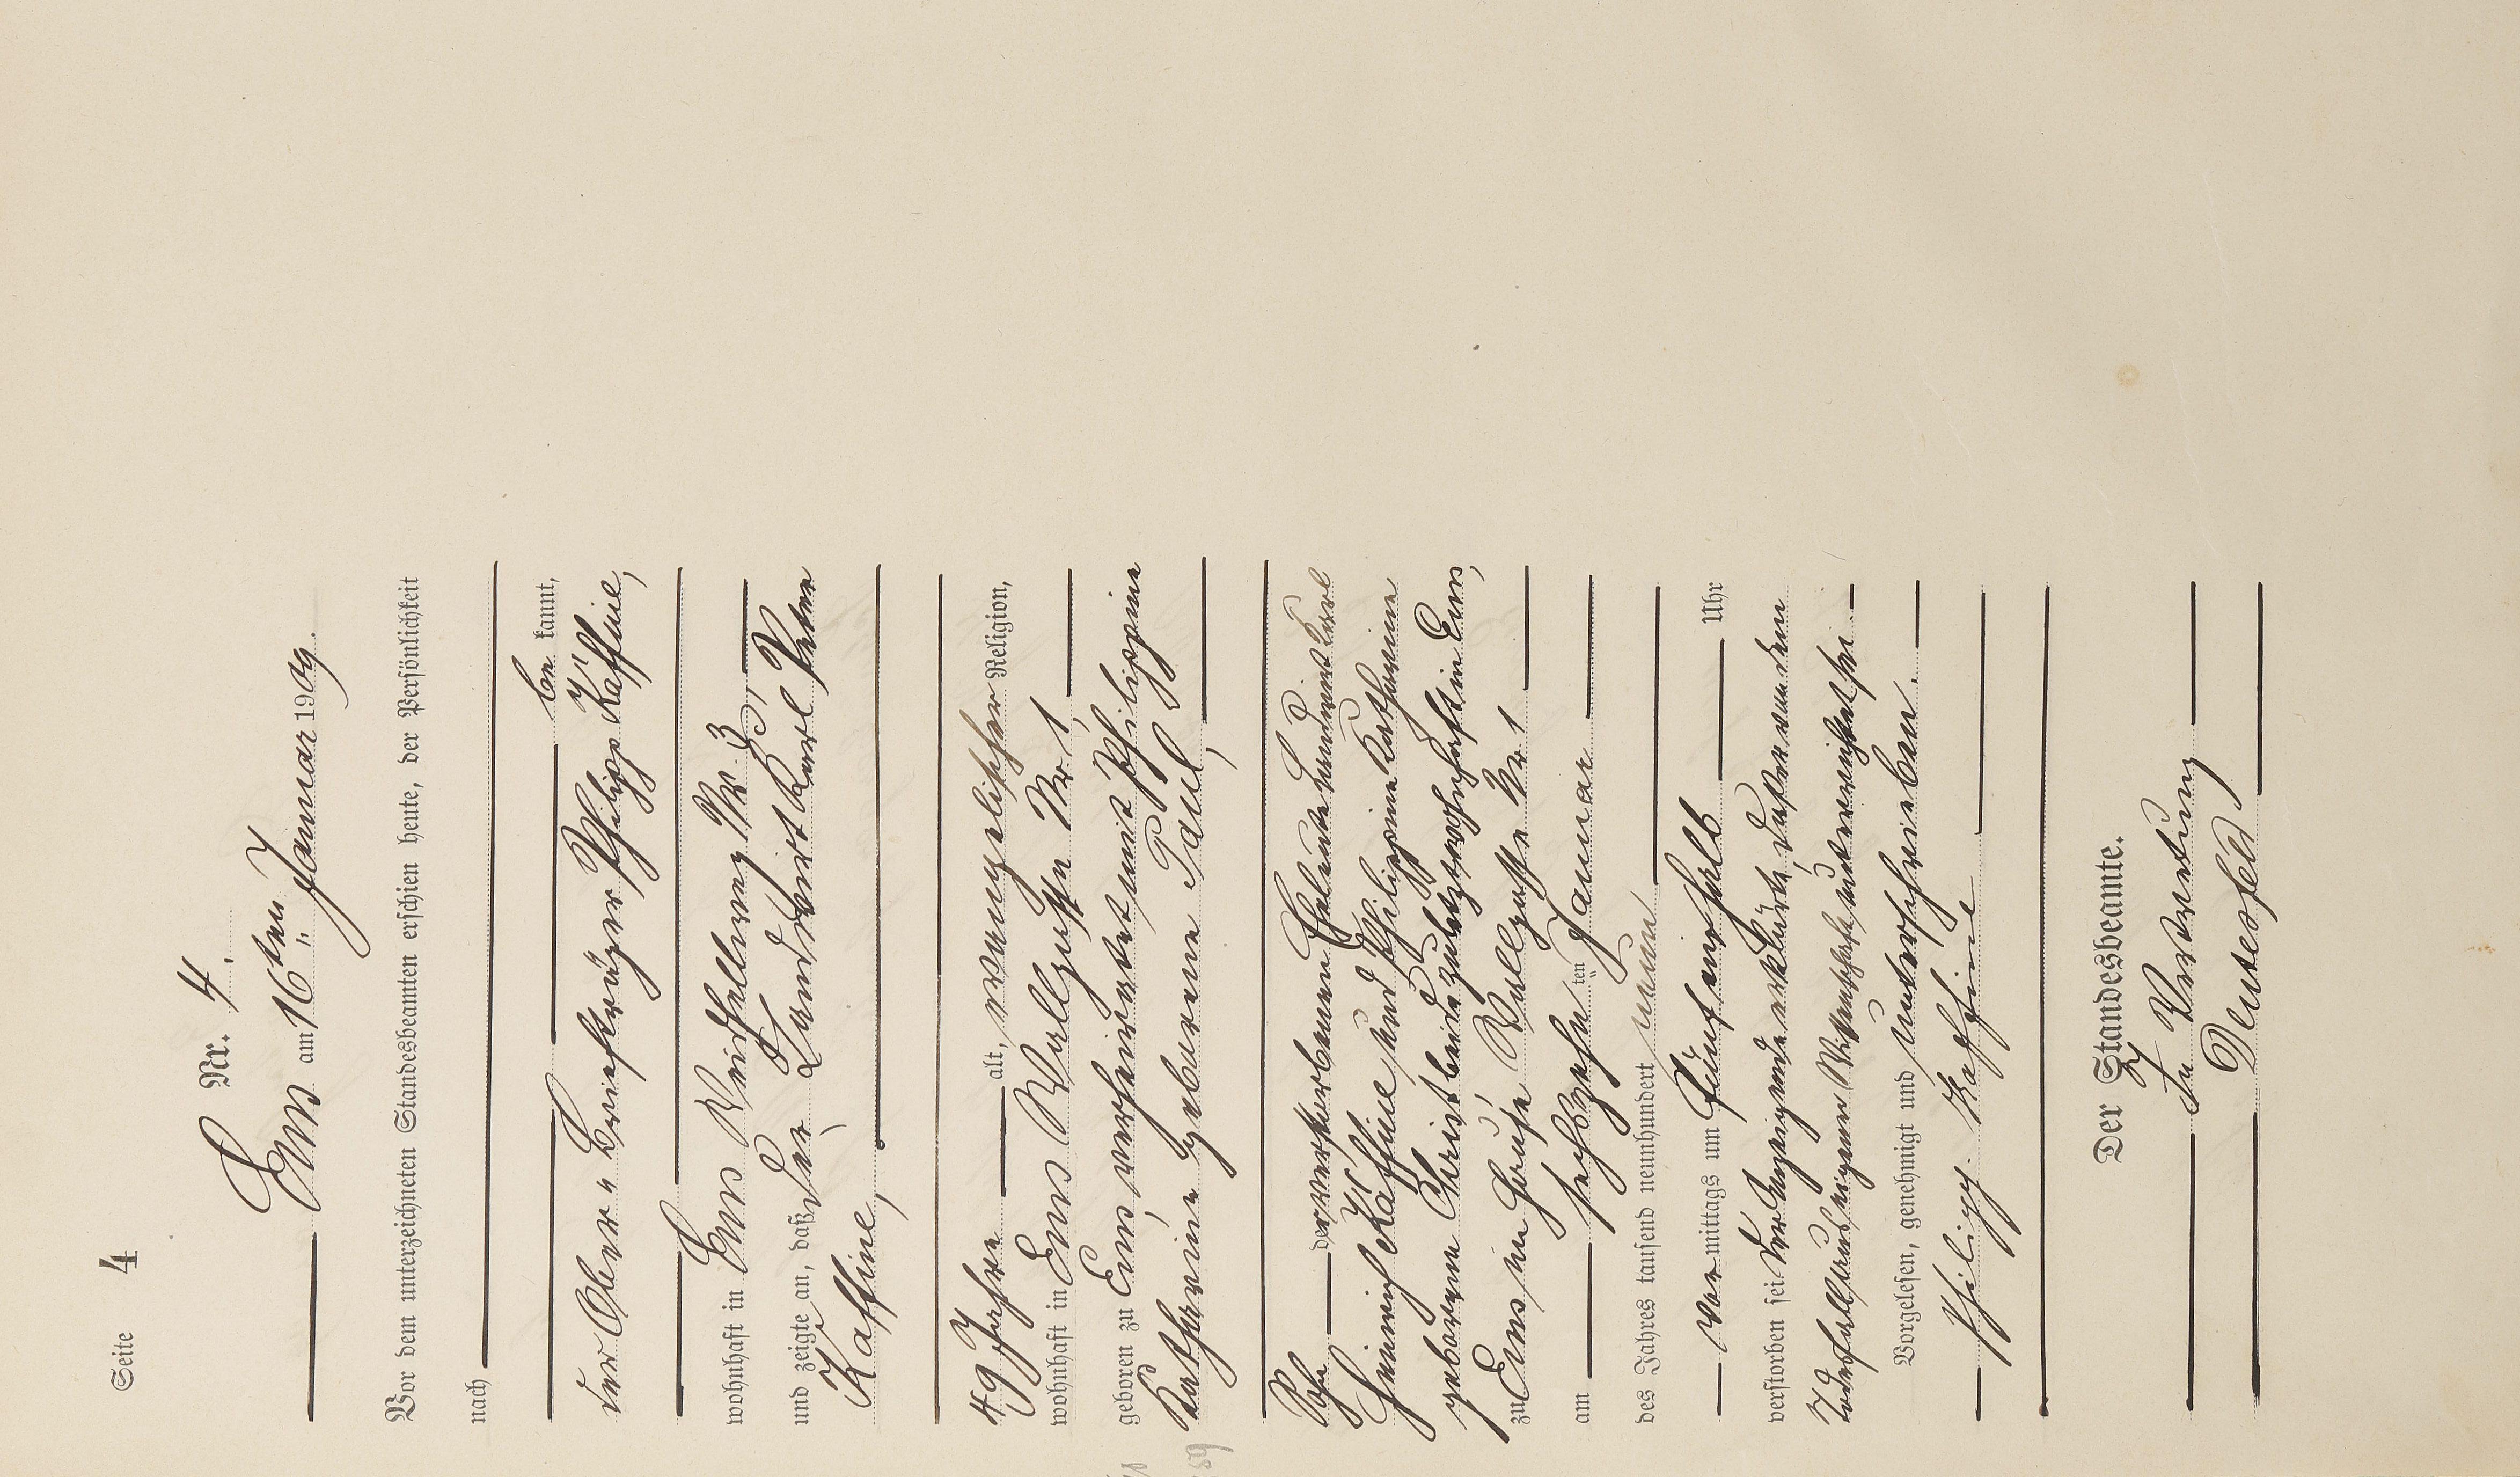 Seite 4
Nr. 4.
Ems am 16ten Januar 1909.
Vor dem unterzeichneten Standesbeamten erschien heute, der Persönlichkeit
nach
be kannt,
der Ober-Briefträger Philipp Kaffine,
wohnhaft in Ems Weißellweg Nr 33,
und zeigte an, daß der Landwirt Karl Peter
Kaffine,
49 Jahre alt, evangelischer Religion,
wohnhaft in Ems Wallgasse Nr 1,
geboren zu Ems, verheiratet mit Philippine
Katharine geborene Paul,
Sohn der verstorbenen Eheleute Landwirt Karl
Heinrich Kaffine und Philippine Katharine
geborenen Christ beide zuletzt wohnhaft in Ems,
zu Ems im Hause, Wallgasse Nr 1
am sechszehnten Januar
des Jahres tausend neunhundert neun
vor mittags um fünf einhalb Uhr
verstorben sei. Der Anzeigende erklärte, daß er von dem
Todesfall aus eigener Wissenschaft unterrichtet sei
Vorgelesen, genehmigt und unterschrieben.
Philipp Kaffine
Der Standesbeamte.
In Vertretung